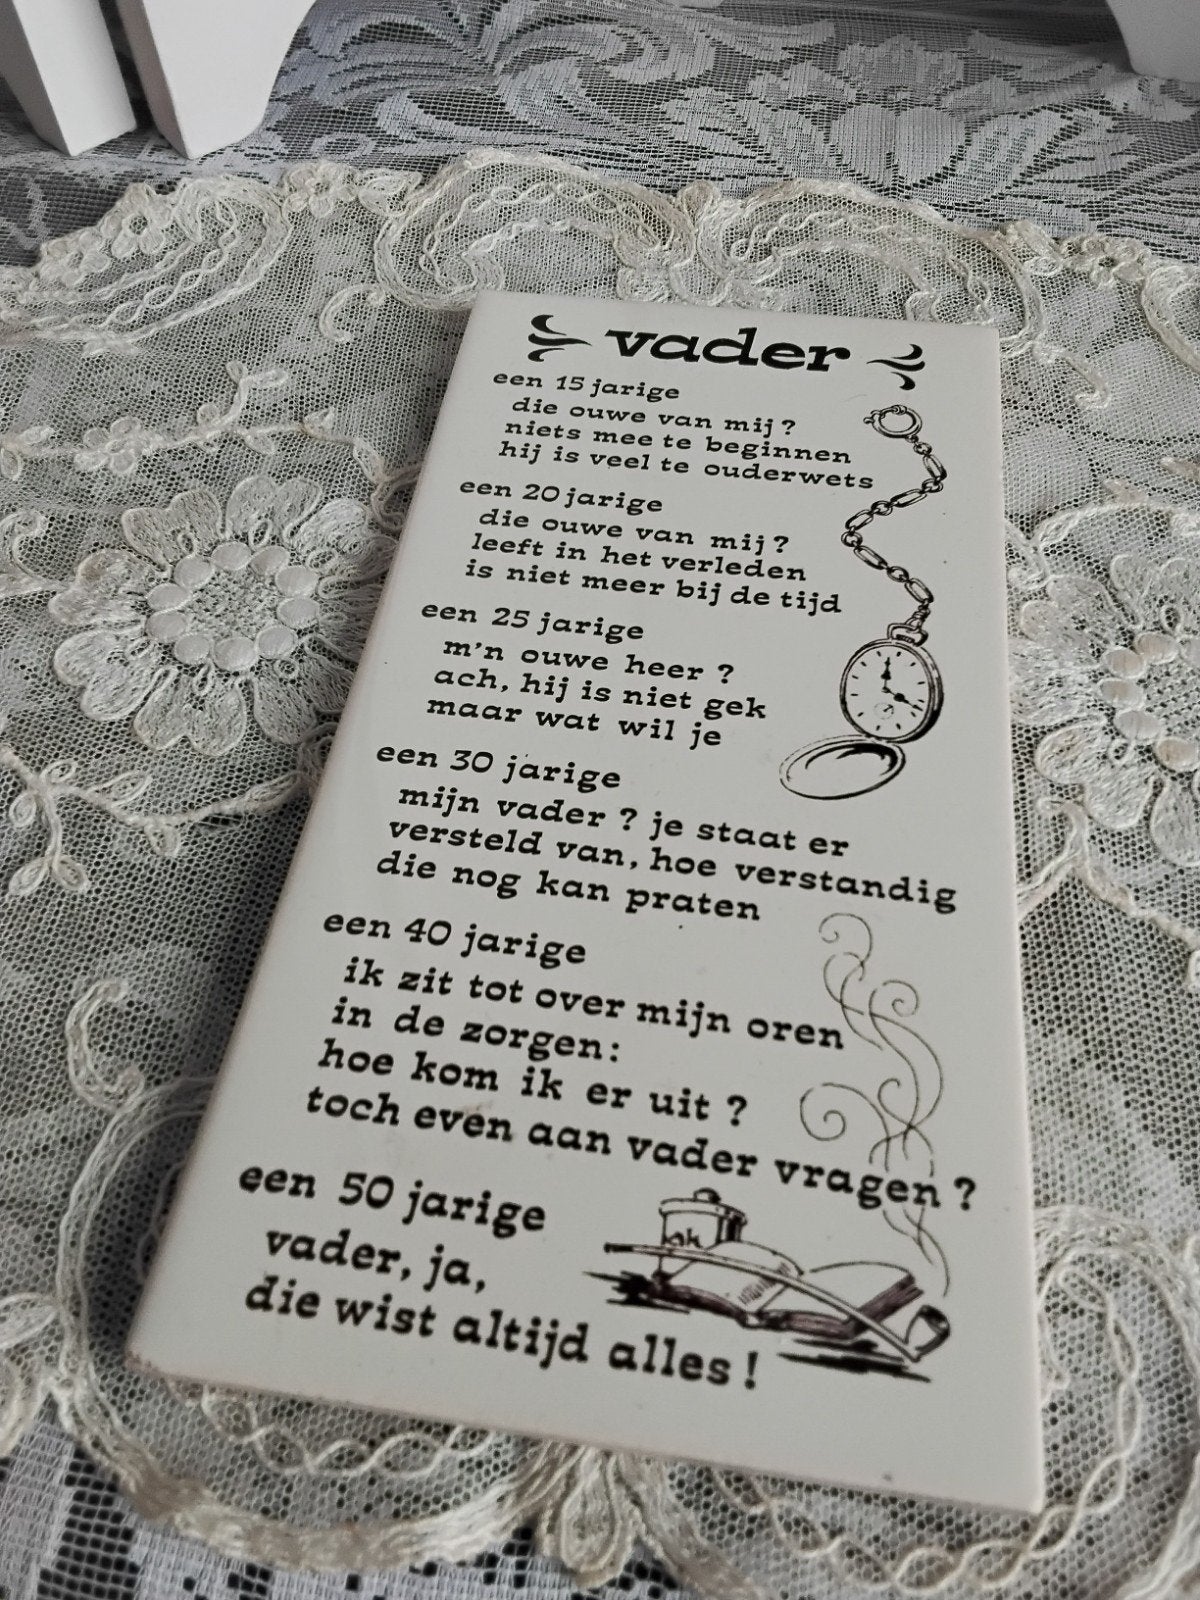 vader
een 15 jarige
die ouwe van mij?
niets mee te beginnen
hij is veel te ouderwets
een 20 jarige
die ouwe van mij?
leeft in het verleden
is niet meer bij de tijd
een 25 jarige
m'n ouwe heer ?
ach, hij is niet gek
maar wat wil je
een 30 jarige
mijn vader ? je staat er
versteld van, hoe verstandig
die nog kan praten
een 40 jarige
ik zit tot over mijn oren
in de zorgen:
hoe kom ik er uit ?
toch even aan vader vragen ?
een 50 jarige
vader, ja,
die wist altijd alles !